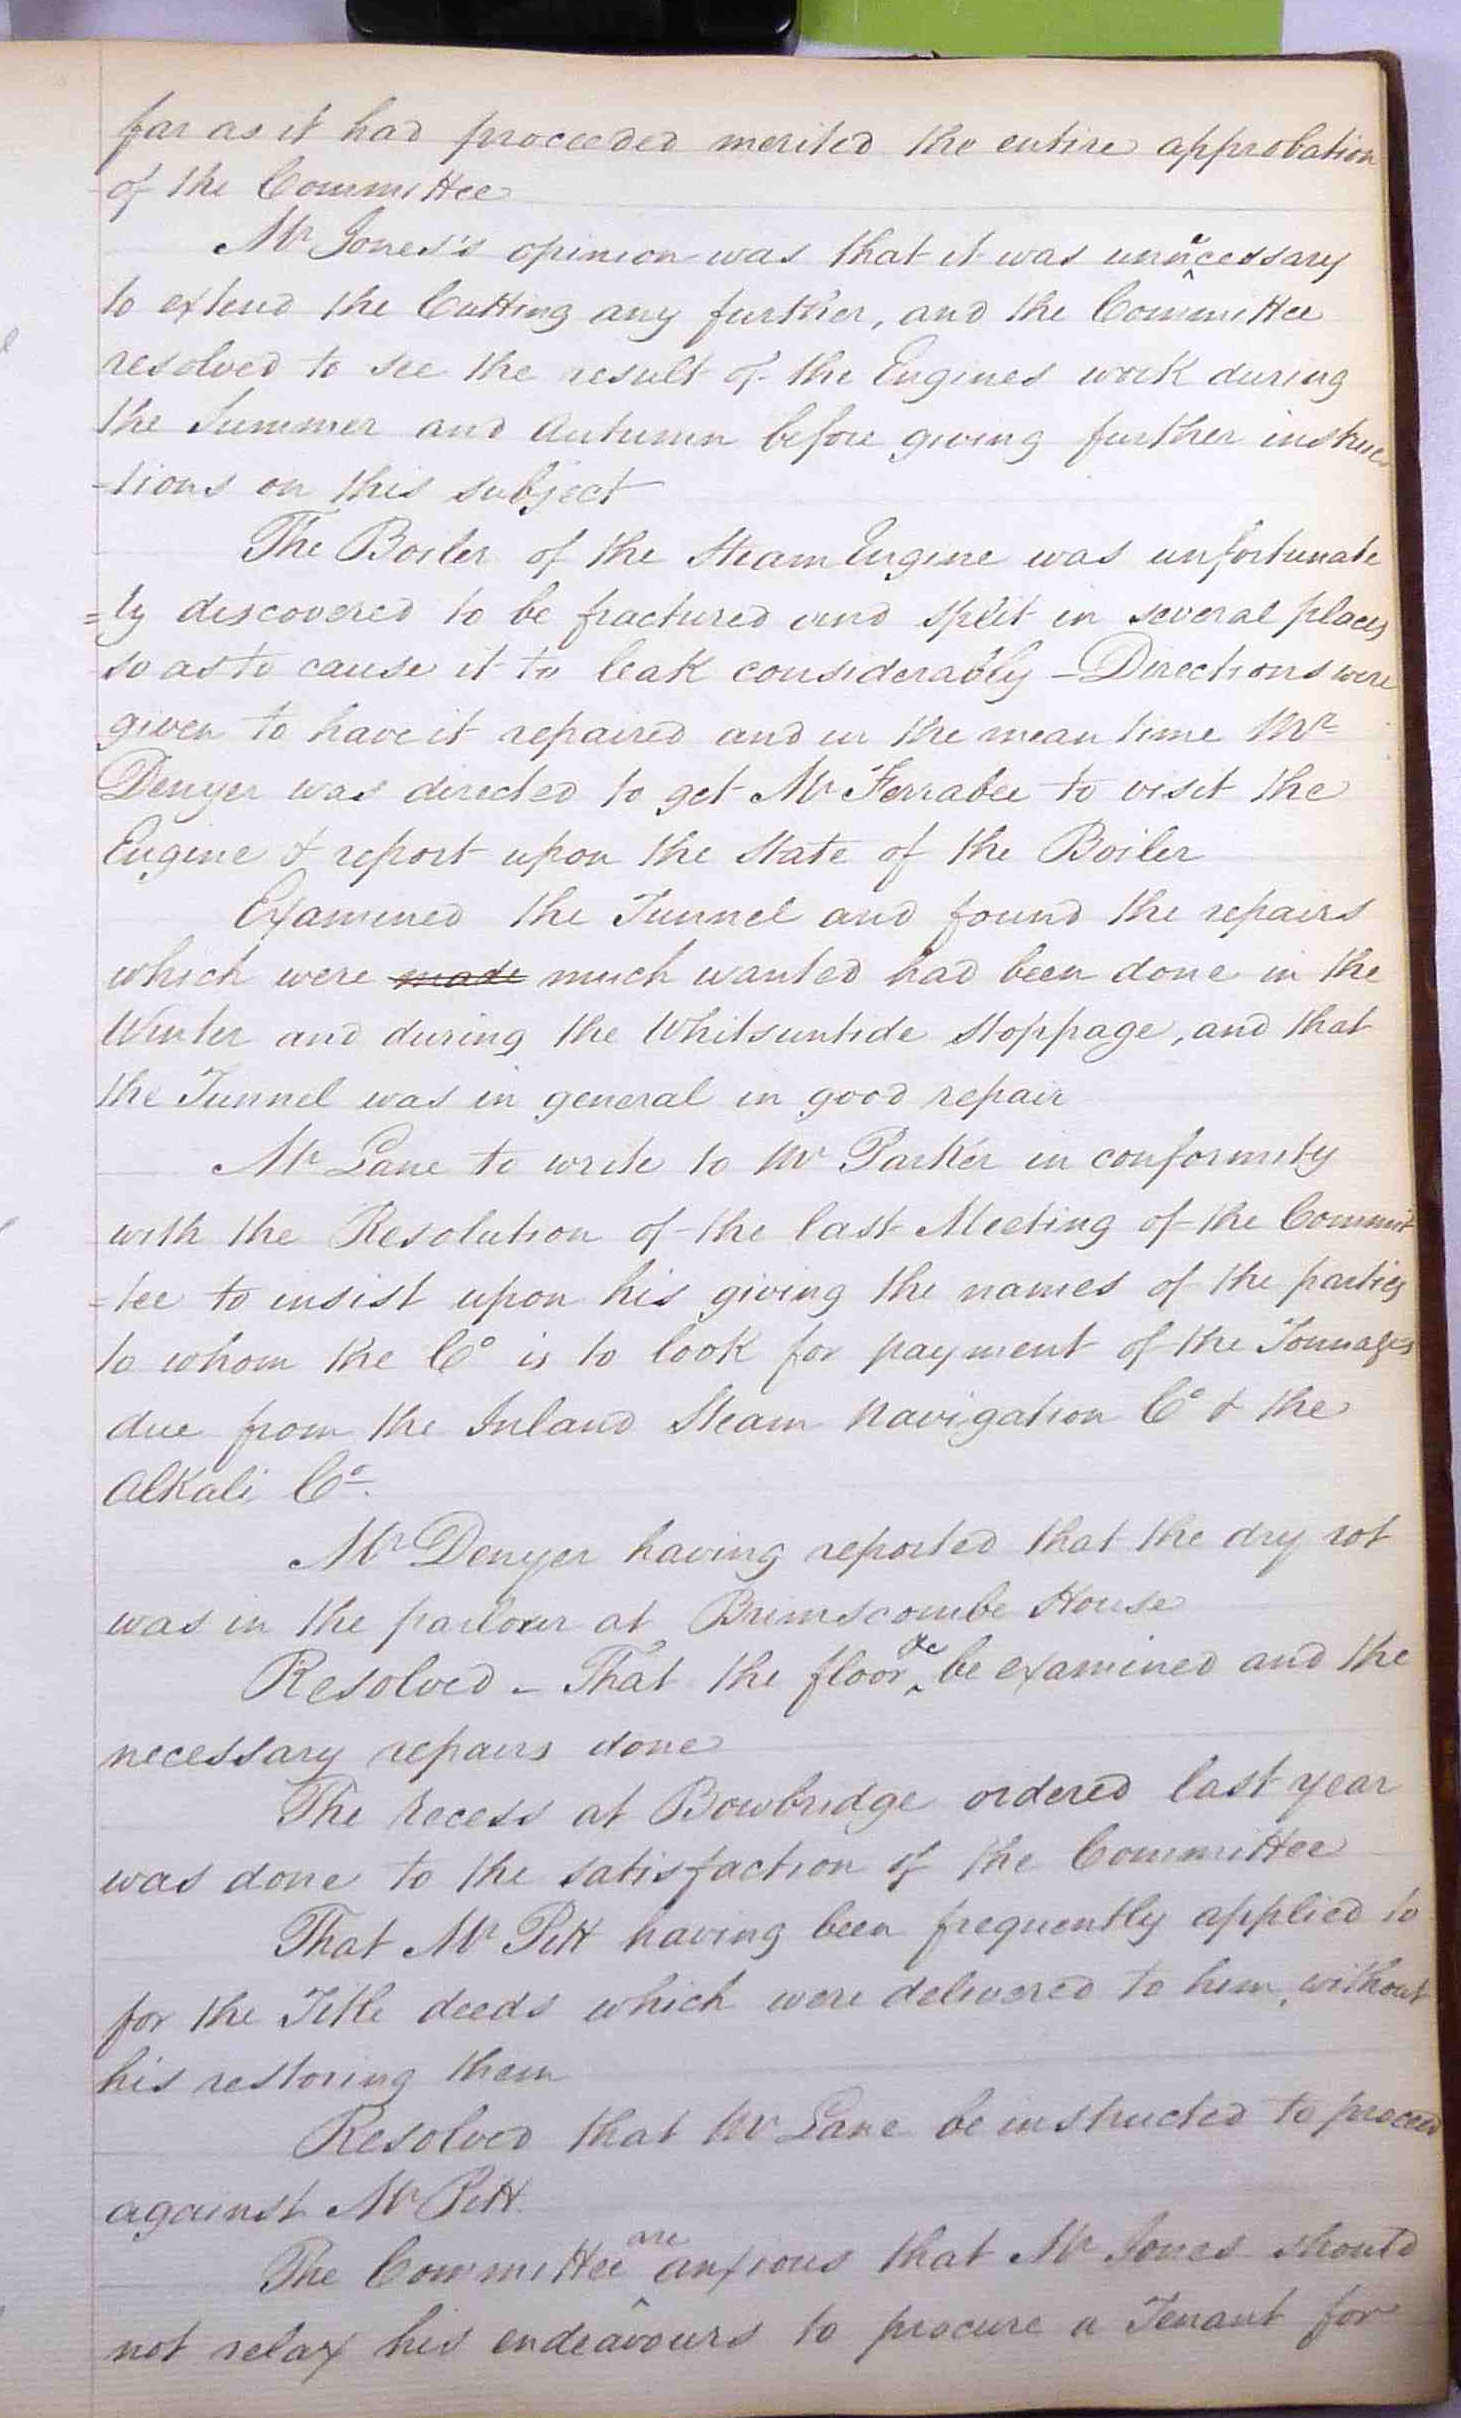 far as it had proceeded merited the entire approbation
of the Committee
Mr Jones's opinion was that it was unnecessary
to extend the Cutting any further, and the Committee
resolved to see the result of the Engines work during
the Summer and Autumn before giving further instruc-
-tions on this subject
The Boiler of the Steam Engine was unfortunate
=ly discovered to be fractured and split in several places
so as to cause it to leak considerably - Directions were
given to have it repaired and in the mean time Mr
Denyer was directed to get Mr Ferrabee to visit the
Engine & report upon the State of the Boiler
Examined the Tunnel and found the repairs
which were made much wanted had been done in the
Winter and during the Whitsuntide Stoppage, and that
the Tunnel was in general in good repair
Mr Lane to write to Mr Parker in conformity
with the Resolution of the last Meeting of the Commit
=tee to insist upon his giving the names of the parties
to whom the Co is to look for payment of the Tonnages
due from the Inland Steam Navigation Co & the
Alkali Co.
Mr Denyer having reported that the dry rot
was in the parlour at Brimscombe House
Resolved - That the floor &c be examined and the
necessary repairs done
The Recess at Bowbridge ordered last year
was done to the satisfaction of the Committee
That Mr Pitt having been frequently applied to
for the Title deeds which were delivered to him, without
his restoring them
Resolved that Mr Lane be instructed to proceed
against Mr Pitt
The Committee are anxious that Mr Jones should
not relax his endeavours to procure a Tenant for